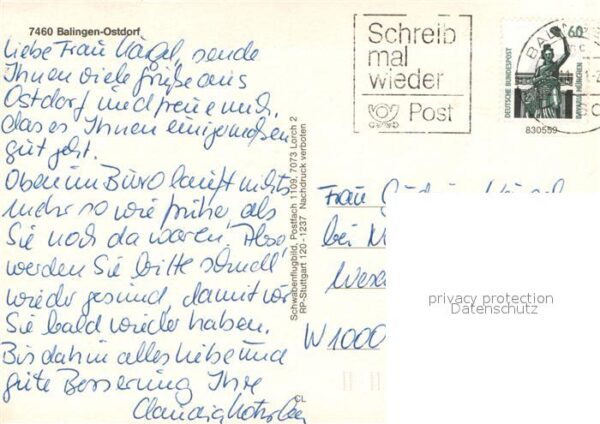 7460 Balingen-Ostdorf
Liebe Frau Nägel, sende
Ihnen viele Grüße aus
Ostdorf und freue mich,
das es Ihnen einigermaßen
gut geht.
Oben im Büro läuft nichts
mehr so wie früher, als
Sie noch da waren. Also
werden Sie bitte schnell
wieder gesund, damit wir
Sie bald wieder haben.
Bis dahin alles liebe und
gute Besserung Ihre
Claudia
CL
Schwabenflugbild, Postfach 1109, 7073 Lorch 2
RP-Stuttgart 120-1237 Nachdruck verboten
Schreib
mal
wieder
Post
BAL
60
DEUTSCHE BUNDESPOST
BAVARIA MÜNCHEN
830559
Frau
bei
W 1000
privacy protection
Datenschutz